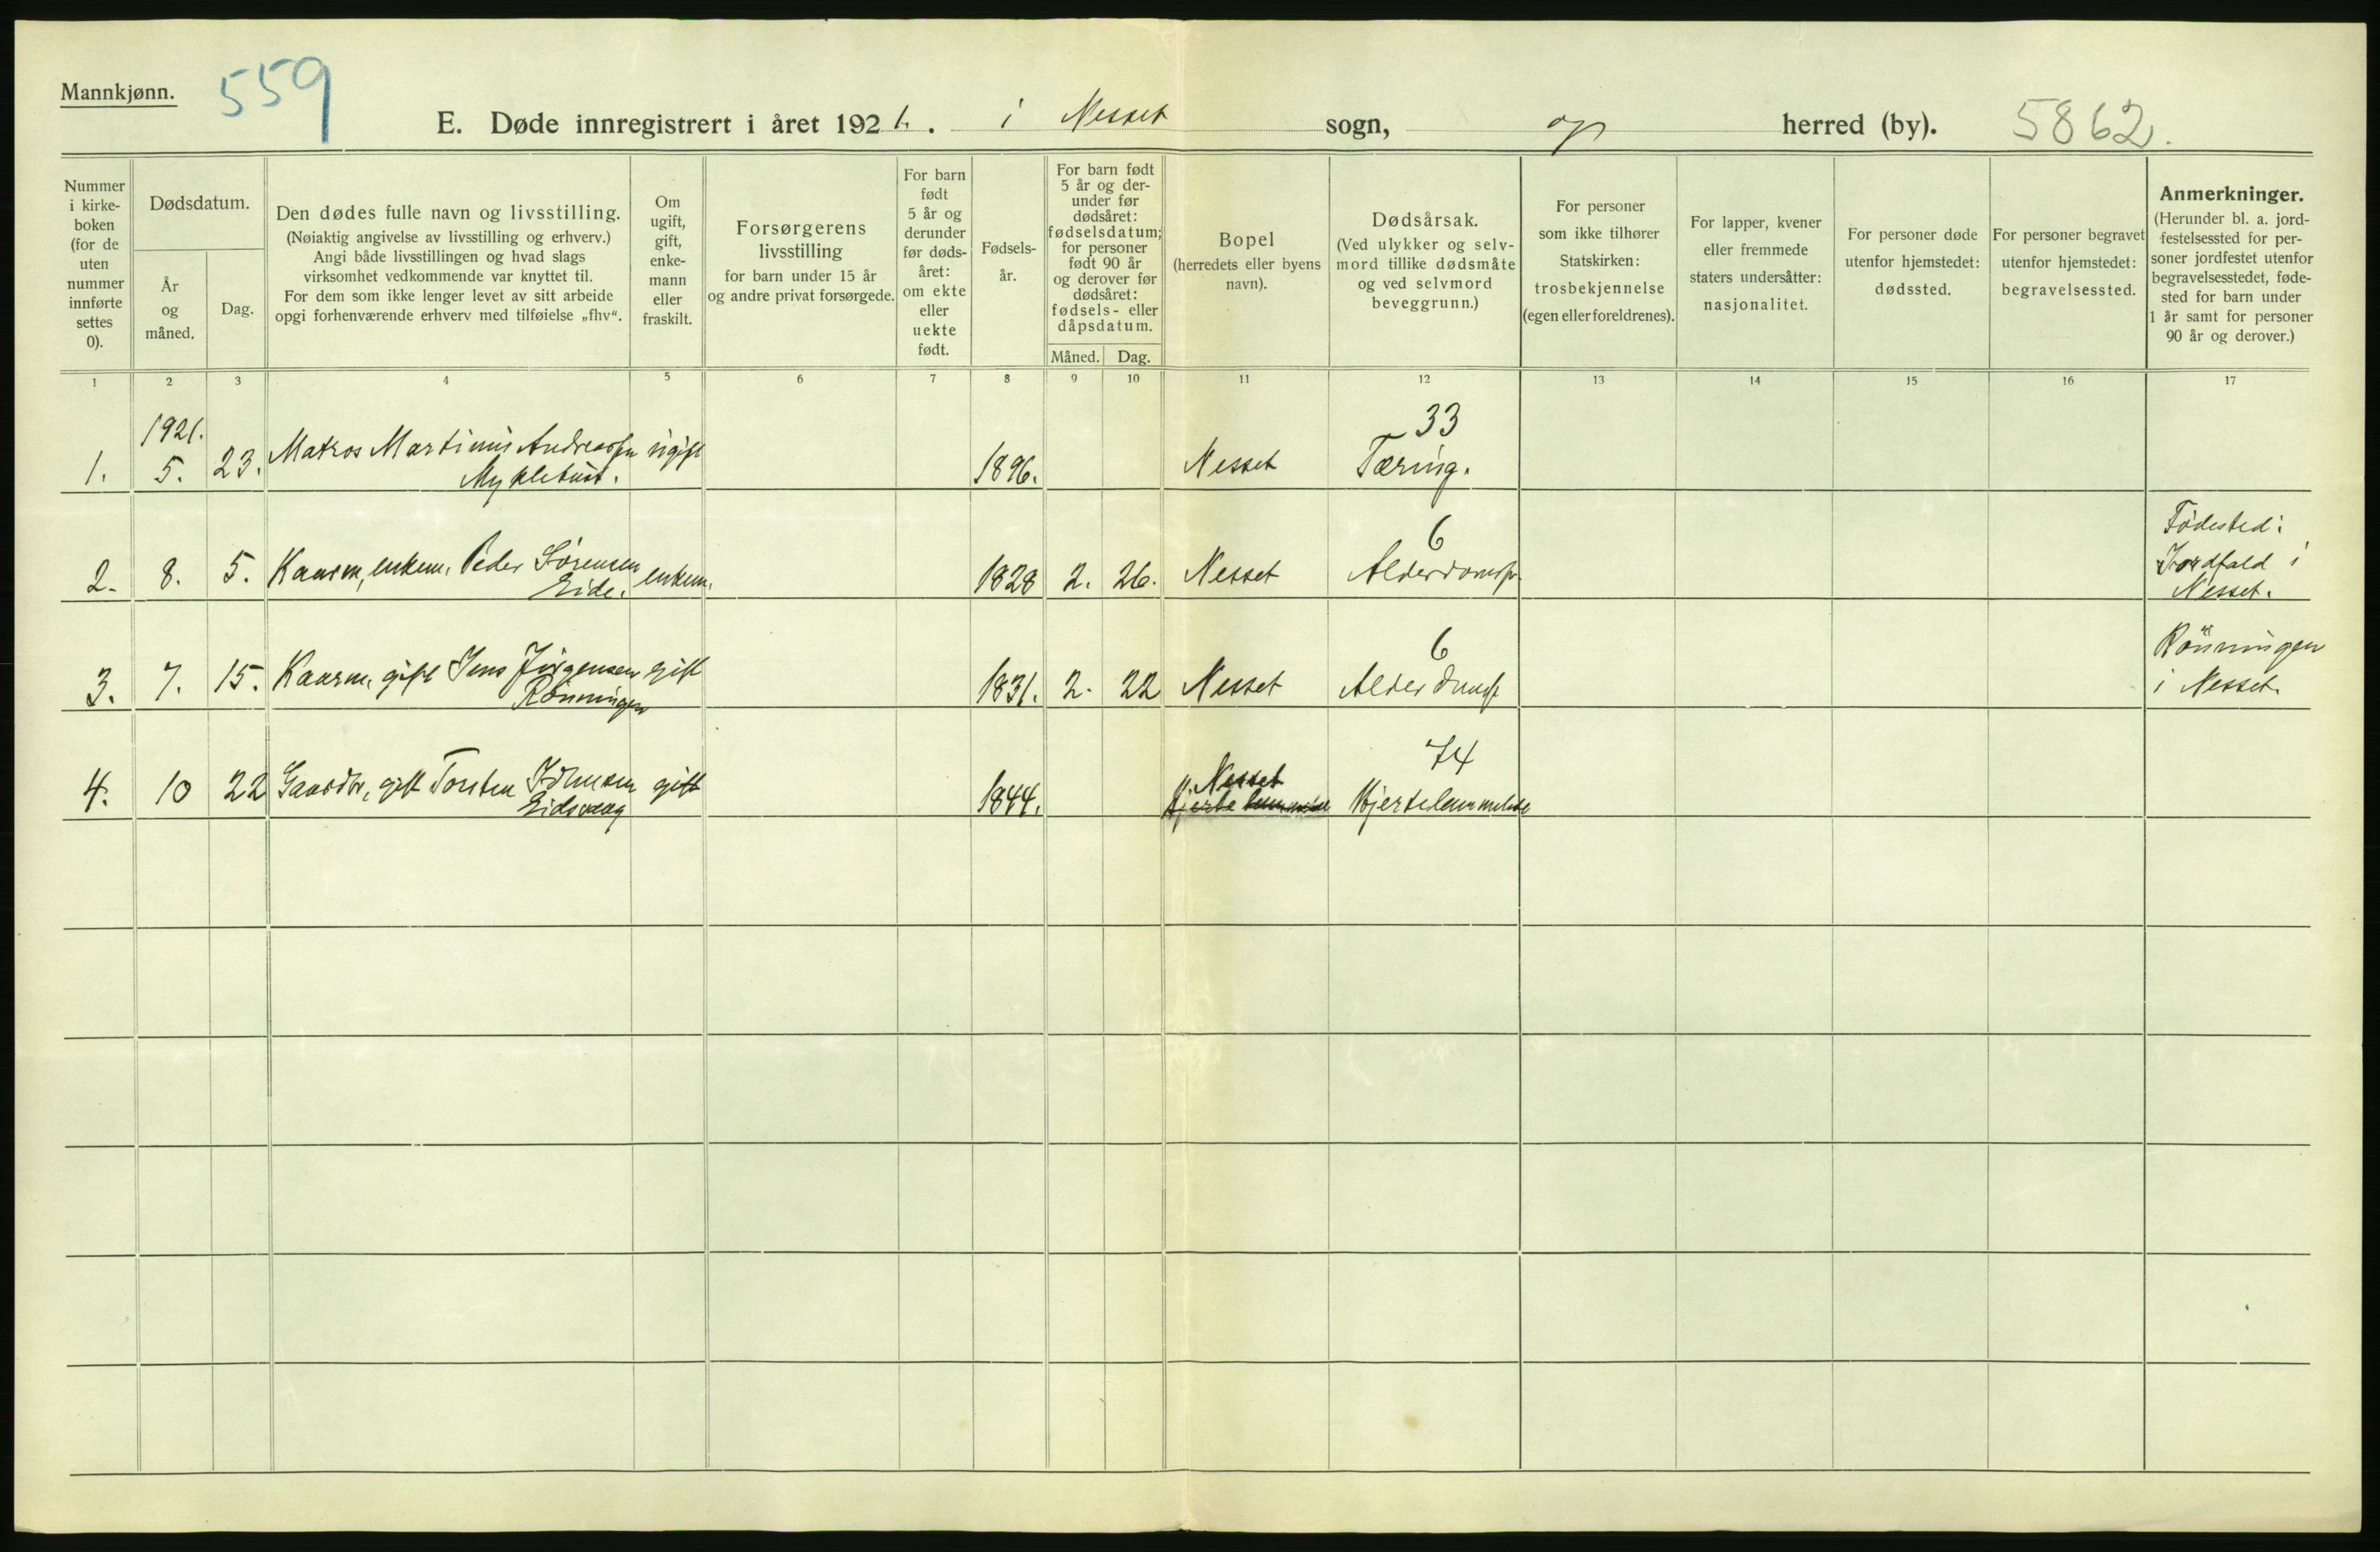 Mannkjønn.
559
E. Døde innregistrert i året 1921. i Nesset sogn, og herred (by).
5862.
Nummer
i kirke-
boken
(for de
uten
nummer
innførte
settes
0).
Dødsdatum.
År
og
måned.
Dag.
Den dødes fulle navn og livsstilling.
(Nøiaktig angivelse av livsstilling og erhverv.)
Angi både livsstillingen og hvad slags
virksomhet vedkommende var knyttet til.
For dem som ikke lenger levet av sitt arbeide
opgi forhenværende erhverv med tilføielse „fhv“.
Om
ugift,
gift,
enke-
mann
eller
fraskilt.
Forsørgerens
livsstilling
for barn under 15 år
og andre privat forsørgede.
For barn
født
5 år og
derunder
før døds-
året:
om ekte
eller
uekte
født.
Fødsels-
år.
For barn født
5 år og der-
under før
dødsåret:
fødselsdatum;
for personer
født 90 år
og derover før
dødsåret:
fødsels- eller
dåpsdatum.
Måned. Dag.
Bopel
(herredets eller byens
navn).
Dødsårsak.
(Ved ulykker og selv-
mord tillike dødsmåte
og ved selvmord
beveggrunn.)
For personer
som ikke tilhører
Statskirken:
trosbekjennelse
(egen eller foreldrenes).
For lapper, kvener
eller fremmede
staters undersåtter:
nasjonalitet.
For personer døde
utenfor hjemstedet:
dødssted.
For personer begravet
utenfor hjemstedet:
begravelsessted.
Anmerkninger.
(Herunder bl. a. jord-
festelsessted for per-
soner jordfestet utenfor
begravelsesstedet, føde-
sted for barn under
1 år samt for personer
90 år og derover.)
1 2 3 4 5 6 7 8 9 10 11 12 13 14 15 16 17
1921.
33
1. 5. 23. Matros Martinus Andreassn ugift 1896. Nesset Tæring.
Myklebust.
6
Födested:
2. 8. 5. Kaarm, enkem. Peder Sörensen enkem. 1828 2. 26. Nesset Alderdomsv Jordfald i
Eide. Nesset.
6
Rönningen
3. 7. 15. Kaarm, gift Jens Jörgensen gift 1831. 2. 22 Nesset Alderdomsv i Nesset.
Rönningen
74
Nesset
4. 10 22 Gaardbr, gift Torsten Johnsen gift 1844. Hjertelammelse Hjertelammelse
Eidsvaag